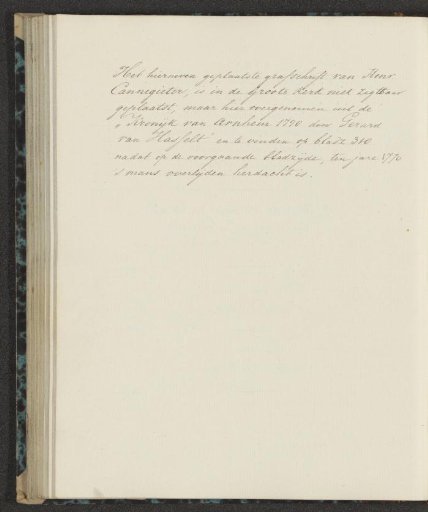 Het hierneven geplaatste grafschrift van Henr
Cannegieter, is in de Groote Kerk niet zigtbaar
geplaatst, maar hier overgenomen uit de
„Kronijk van Arnhem 1790 door Gerard
van Hasselt" en te vinden op bladz 310
nadat op de voorgaande bladzyde, ten jare 1770
's mans overlijden herdacht is.